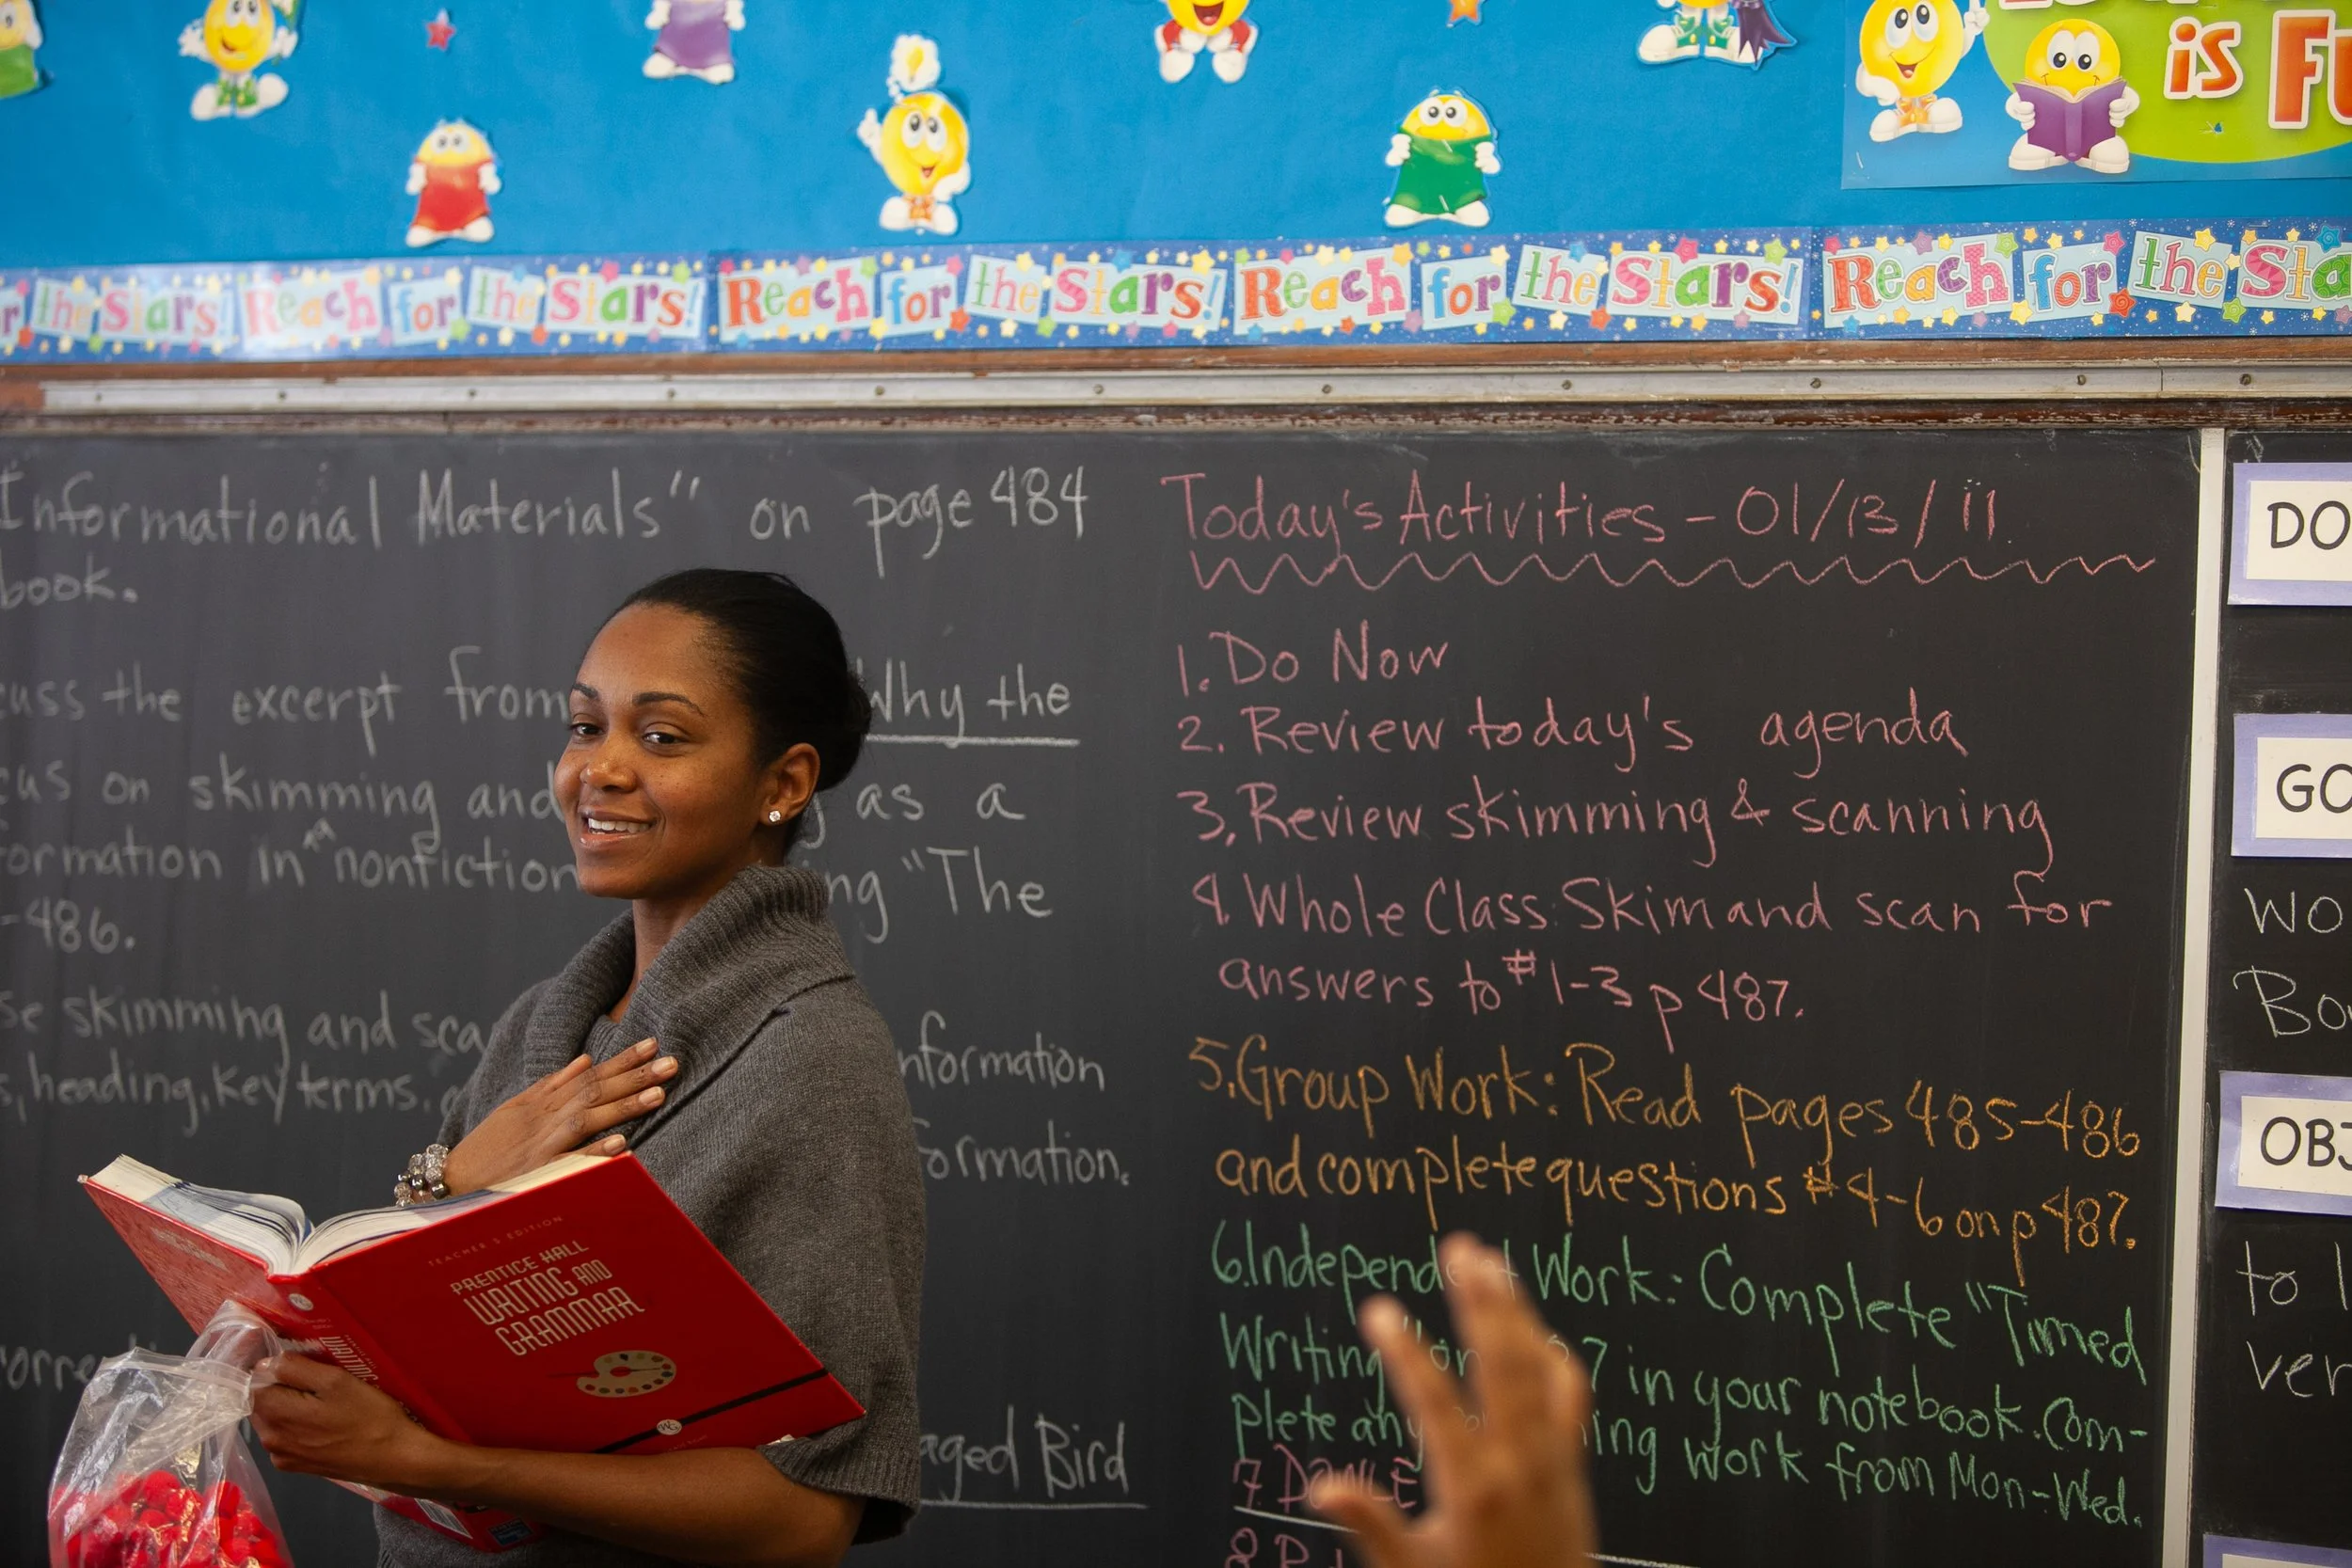 is
Reach for the Stars! Reach for the Stars! Reach for the Stars! Reach for the Sta
Informational Materials" on page 484
book.
cuss the excerpt from Why the
cus on skimming and as a
formation in nonfiction ing "The
-486.
se skimming and sca nformation
s, heading, key terms, formation.
aged Bird
Today's Activities - 01/13/11
1. Do Now
2. Review today's agenda
3. Review skimming & scanning
4. Whole Class: Skim and scan for
answers to #1-3 p 487.
5. Group Work: Read pages 485-486
and complete questions #4-6 on p 487.
6. Independent Work: Complete "Timed
Writing" on 7 in your notebook. Com-
plete any ing work from Mon-Wed.
7.
8.
DO
GO
WO
Bo
OBJ
to
ver
TEACHER'S EDITION
PRENTICE HALL
WRITING AND
GRAMMAR
WRITING